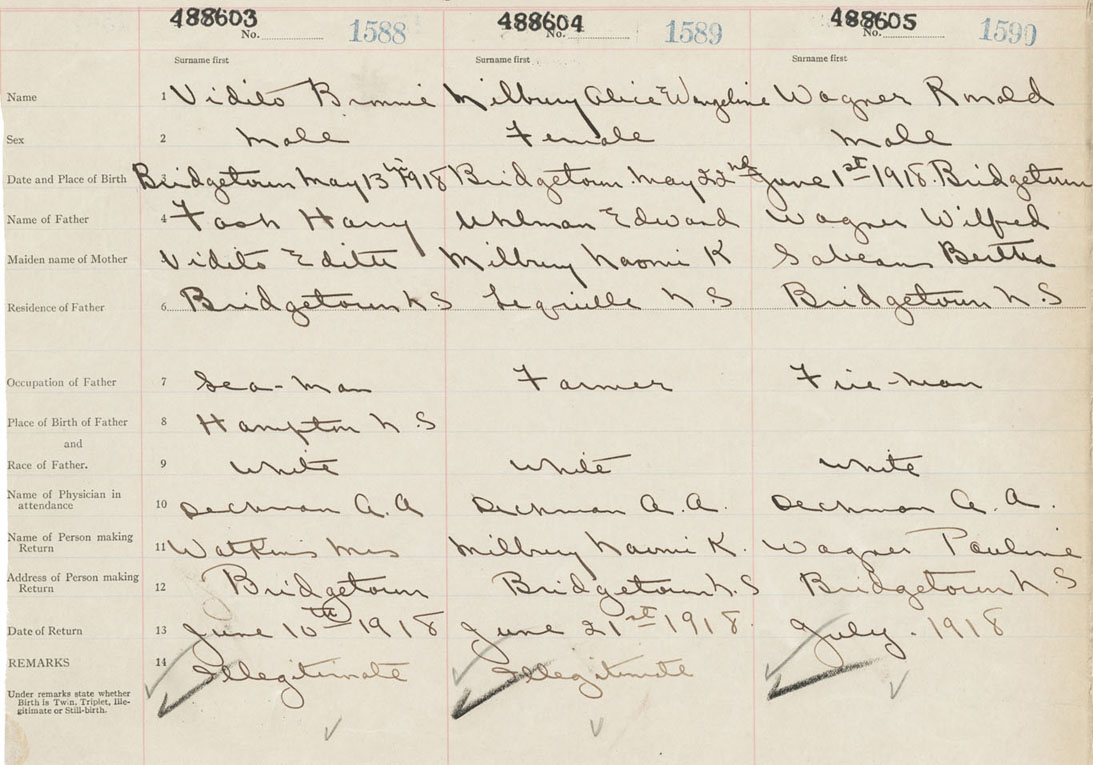 488603 488604 488605
No. 1588 No. 1589 No. 1590
Surname first Surname first Surname first
Name 1 Vidito Binnie Milbury Alice Evangeline Wagner Ronald
Sex 2 Male Female Male
Date and Place of Birth 3 Bridgetown May 13th 1918 Bridgetown May 22nd June 1st 1918. Bridgetown
Name of Father 4 Fash Harry Uhlman Edward Wagner Wilfred
Maiden name of Mother Vidito Edith Milbury Naomi K Sabeans Bertha
Residence of Father 6 Bridgetown N S Lequille N S Bridgetown N.S
Occupation of Father 7 Sea-man Farmer Fire-man
Place of Birth of Father 8 Hampton N S
and
Race of Father. 9 White White White
Name of Physician in
attendance 10 Deckman A. A Deckman A. A. Deckman A. A.
Name of Person making
Return 11 Watkins Mrs Milbury Naomi K. Wagner Pauline
Address of Person making
Return 12 Bridgetown Bridgetown N.S Bridgetown N S
Date of Return 13 June 10th 1918 June 21st 1918. July. 1918
REMARKS 14 Illegitimate Illegitimate
Under remarks state whether
Birth is Twin, Triplet, Ille-
gitimate or Still-birth.